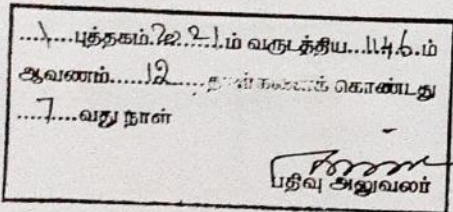 ...1...புத்தகம்.2021.ம் வருடத்திய...1146.ம்
ஆவணம்......12....தாள்களைக் கொண்டது
....7....வது நாள்
பதிவு அலுவலர்